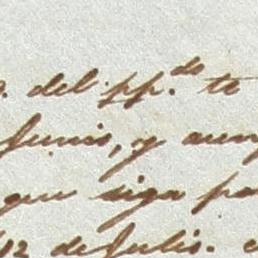 del pp.do te
Junio, y aunq
que siga pa
12 de Julio.